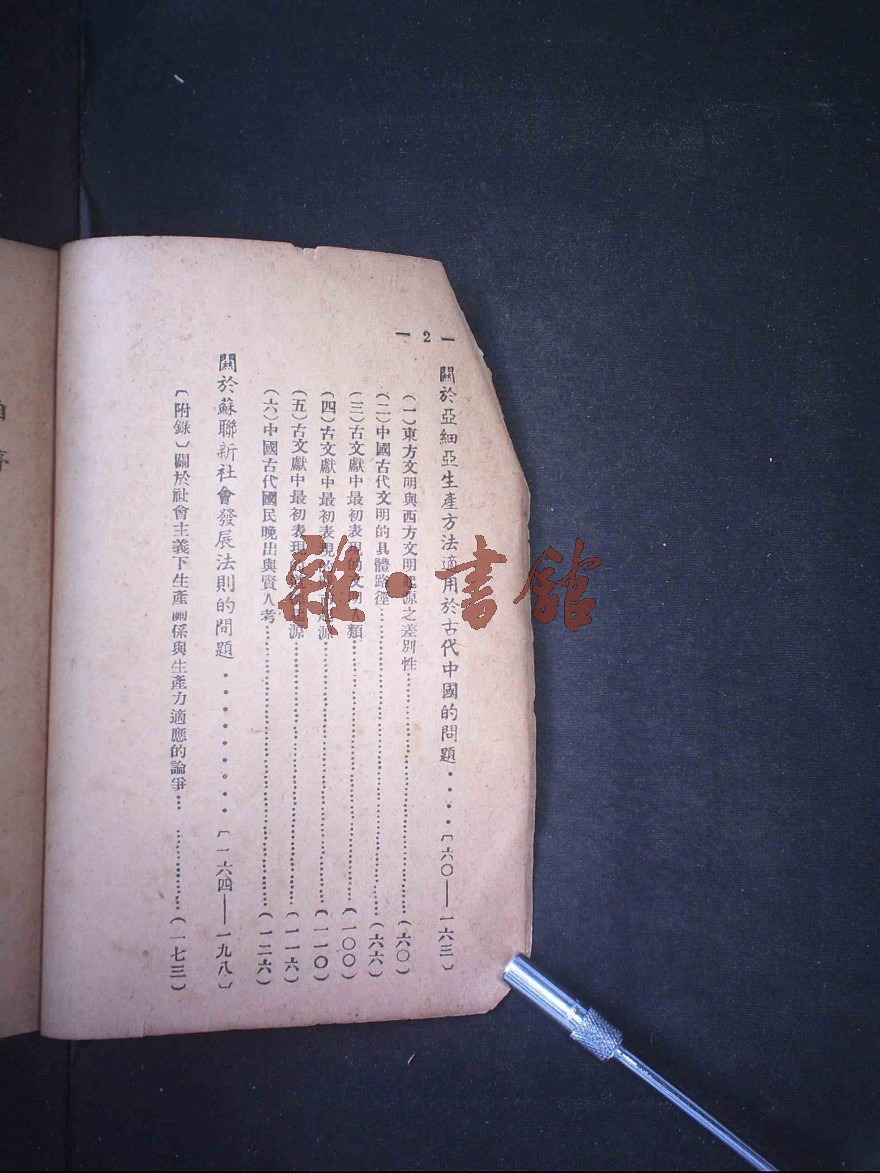 — 2 —
關於亞細亞生產方法適用於古代中國的問題・・・・〔六〇——一六三〕
(一)東方文明與西方文明起源之差別性……(六〇)
(二)中國古代文明的具體路徑……(六六)
(三)古文獻中最初表現的文明 類……(一〇〇)
(四)古文獻中最初表現的 源……(一一〇)
(五)古文獻中最初表現 源……(一一六)
(六)中國古代國民晚出與賢人考……(一二六)
關於蘇聯新社會發展法則的問題・・・・・・・・〔一六四——一九八〕
〔附錄〕關於社會主義下生產關係與生產力適應的論爭……(一七三)
雜・書館